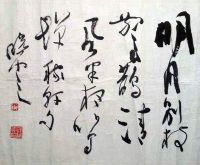 明月别枝
惊鹊清
风半夜鸣
蝉稼轩句